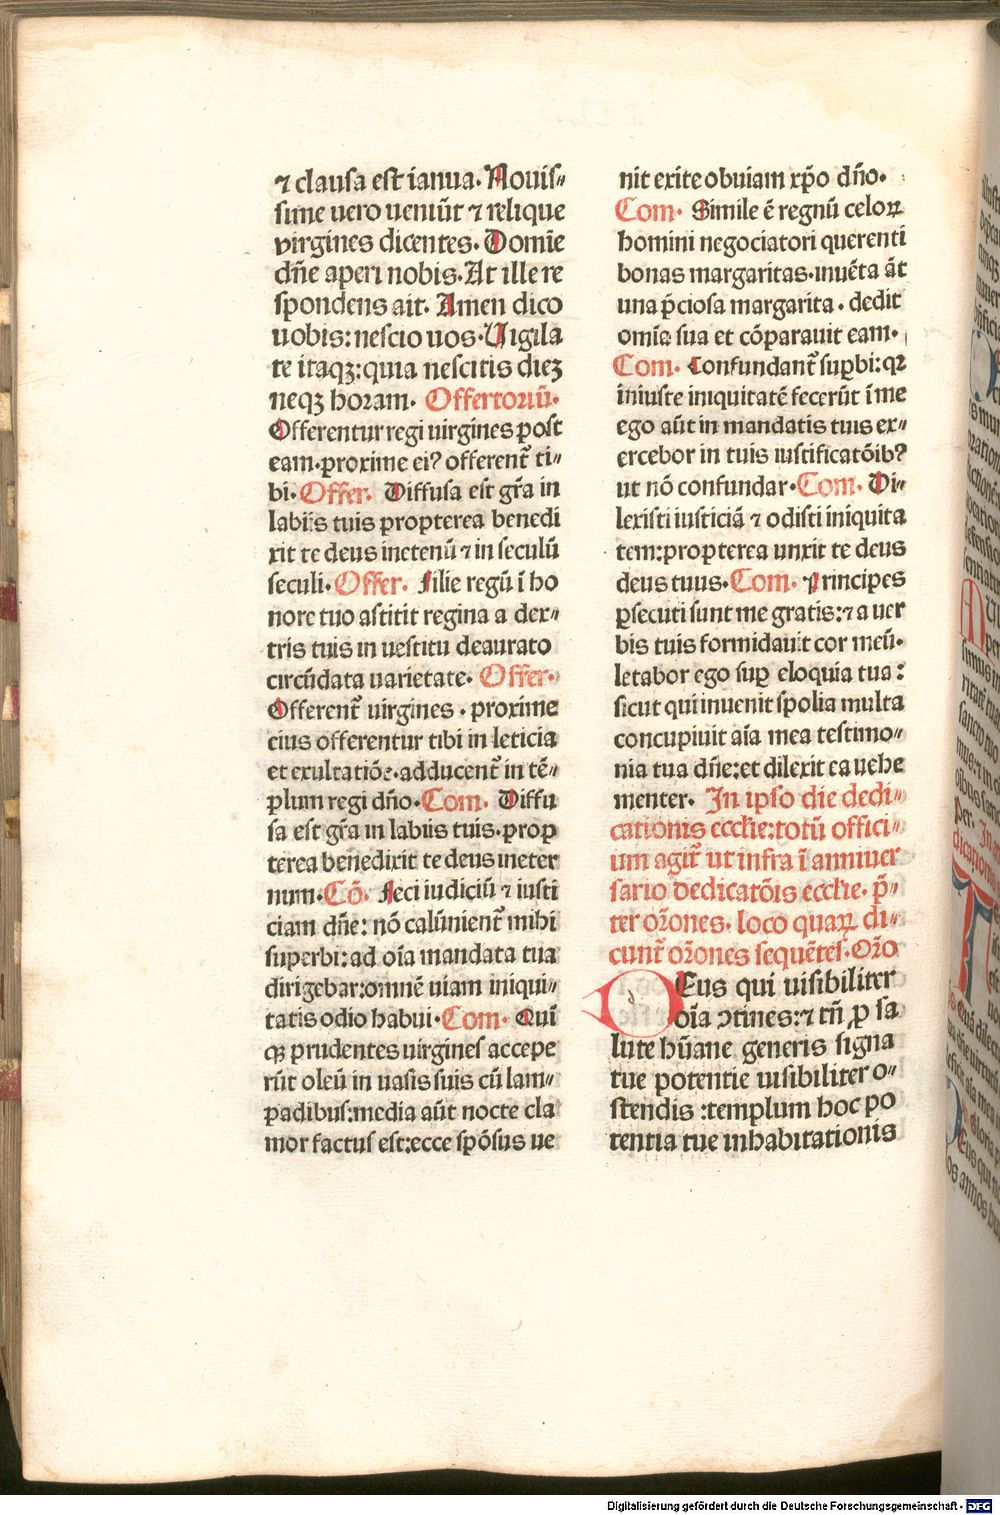 ⁊ clausa est ianua. Nouis⸗
sime uero ueniūt ⁊ relique
virgines dicentes. Domīe
dn̄e aperi nobis. At ille re
spondens ait. Amen dico
uobis: nescio uos. Uigila
te itaqꝫ: quia nescitis dieꝫ
neqꝫ horam. Offertoriū.
Offerentur regi uirgines post
eam. proxime ei? offerent̄ ti⸗
bi. Offer. Diffusa est gr̄a in
labiis tuis propterea benedi
xit te deus ineternū ⁊ in seculū
seculi. Offer. Filie regū ī ho
nore tuo astitit regina a dex⸗
tris tuis in uestitu deaurato
circūdata uarietate. Offer.
Offerent̄ uirgines . proxime
eius offerentur tibi in leticia
et exultatiōe. adducent̄ in tē⸗
plum regi dn̄o. Com. Diffu
sa est gr̄a in labiis tuis. prop
terea benedixit te deus in eter
num. Cō. Feci iudiciū ⁊ iusti
ciam dn̄e: nō calūnient̄ mihi
superbi: ad oīa mandata tua
dirigebar: omnē uiam iniqui⸗
tatis odio habui. Com. Qui
qꝫ prudentes uirgines accepe
rūt oleū in uasis suis cū lam⸗
padibus: media aūt nocte cla
mor factus est: ecce spōsus ue
nit exite obuiam xp̄o dn̄o.
Com. Simile ē regnū celoꝝ
homini negociatori querenti
bonas margaritas. inuēta āt
una p̄ciosa margarita . dedit
omīa sua et cōparauit eam.
Com. Confundant̄ suꝑbi: qꝛ
iniuste iniquitatē fecerūt ī me
ego aūt in mandatis tuis ex⸗
ercebor in tuis iustificatōib?
ut nō confundar. Com. Di⸗
lexisti iusticiā ⁊ odisti iniquita
tem: propterea unxit te deus
deus tuus. Com. Principes
ꝑsecuti sunt me gratis: ⁊ a uer
bis tuis formidauit cor meū.
letabor ego suꝑ eloquia tua:
sicut qui inuenit spolia multa
concupiuit aīa mea testimo⸗
nia tua dn̄e: et dilexit ea uehe
menter. In ipso die dedi⸗
cationis eccl̄ie: totū offici⸗
um agit̄ ut infra ī anniuer
sario dedicatōis eccl̄ie. p̄⸗
ter or̄ones. loco quaꝝ di⸗
cunt̄ or̄ones sequētes. Or̄o
DEus qui uisibiliter
oīa ꝯtines: ⁊ tn̄ ꝓ sa
lute hūane generis signa
tue potentie uisibiliter o⸗
stendis : templum hoc po
tentia tue inhabitationis
Digitalisierung gefördert durch die Deutsche Forschungsgemeinschaft - DFG